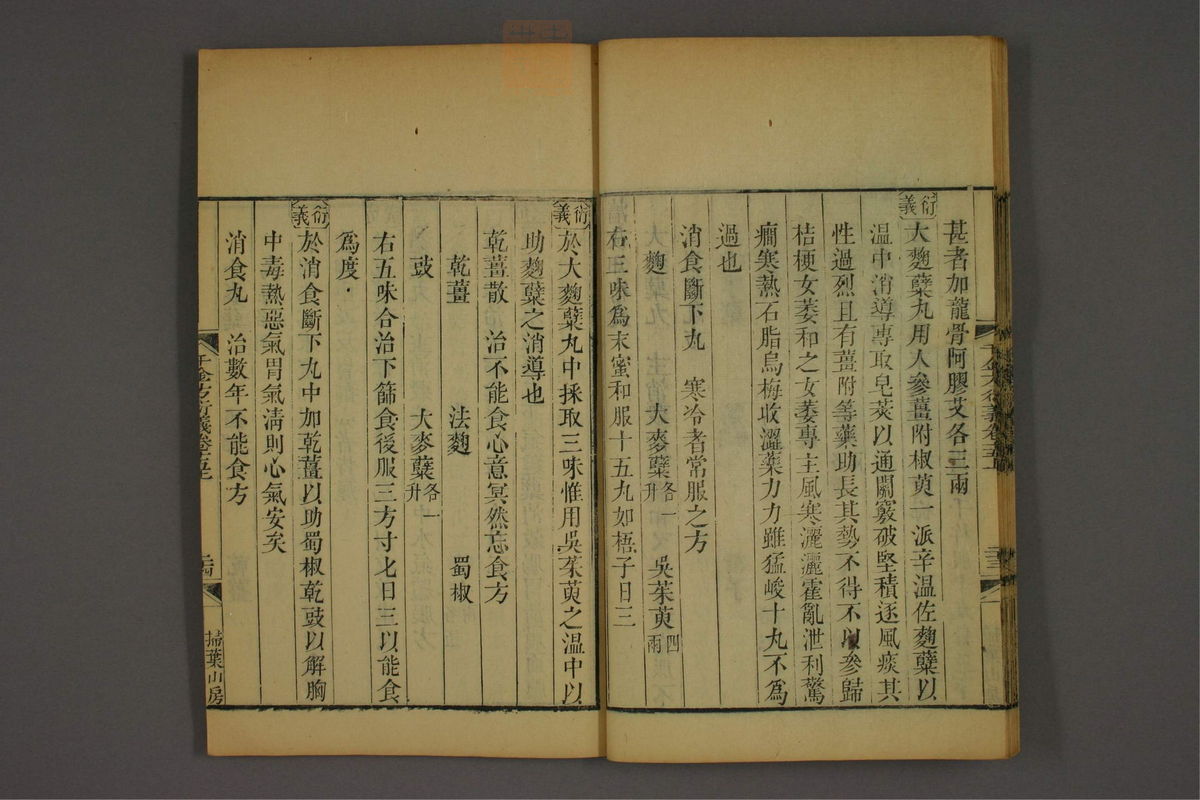 甚者加龍骨阿膠艾各三兩
衍義 大麴蘗丸用人參薑附椒萸一派辛溫佐麴蘗以
溫中消導專取皂莢以通關竅破堅積逐風痰其
性過烈且有薑附等藥助長其勢不得不以參歸
桔梗女萎和之女萎專主風寒灑灑霍亂泄利驚
癇寒熱石脂烏梅收澀藥力力雖猛峻十丸不爲
過也
消食斷下丸 寒冷者常服之方
麴 大麥蘗各一升 吳茱萸四兩
右三味爲末蜜和服十五丸如梧子日三
衍義 於大麴蘗丸中採取三味惟用吳茱萸之溫中以
助麴蘗之消導也
乾薑散 治不能食心意冥然忘食方
乾薑 法麴 蜀椒
豉 大麥蘗各一升
右五味合治下篩食後服三方寸匕日三以能食
爲度
衍義 於消食斷下丸中加乾薑以助蜀椒乾豉以解胸
中毒熱惡氣胃氣清則心氣安矣
消食丸 治數年不能食方
千金方衍義卷十五
掃葉山房